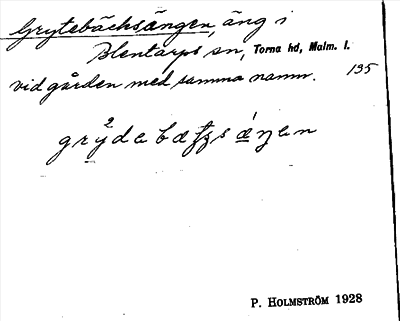 Grytebäcksängen, äng i
Blentarps sn, Torna hd, Malm. l.
vid gården med samma namn. 195
P. HOLMSTRÖM 1928